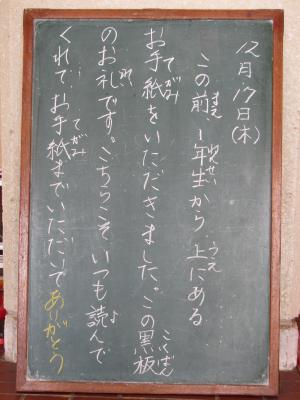 12月17日(木)
この前 1年生から 上にある
お手紙をいただきました。この黒板
のお礼です。こちらこそ いつも読んで
くれて、お手紙までいただいて ありがとう